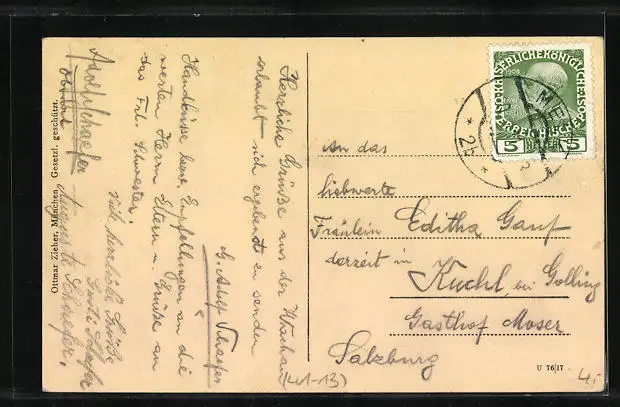 Herzliche Grüße aus der Wachau
erlaubt sich ergebenst zu senden
G. Adolf Schaefer
Handküsse bezw. Empfehlungen an die
werten Herrn Eltern u. Grüße an
das Frl. Schwester.
Viele herzliche Grüße
Schaefer
Adolf Schaefer
Auguste Schaefer.
Ottmar Zieher, München. Gesetzl. geschützt.
(41-13)
KAISERLICHE KÖNIGLICHE
ÖSTERREICHISCHE
1908
5 5
* 2b *
An das
liebwerte
Fräulein Editha Gauf
derzeit in
Kuchl bei Golling
Gasthof Moser
Salzburg
U 7617
4,-